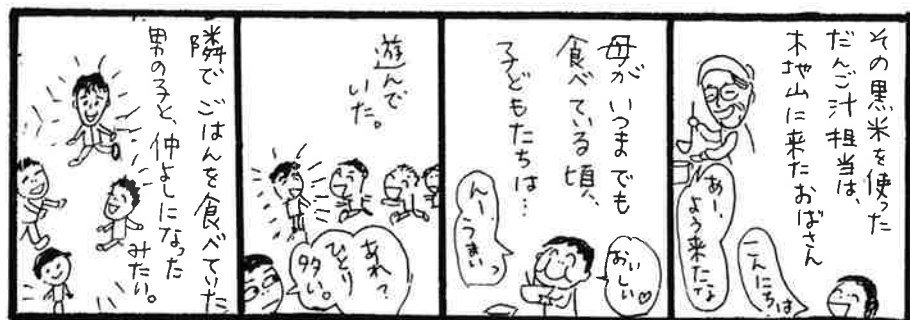 その黒米を使った
だんご汁担当は、
木地山に来たおばさん
こんにちは
あー、
よう来たな
母がいつまでも
食べている頃、
子どもたちは…
おいしい♡
んー、うまいっ
遊んで
いた。
あれ?
ひとり
多い。
隣でごはんを食べていた
男の子と、仲よしになった
みたい。